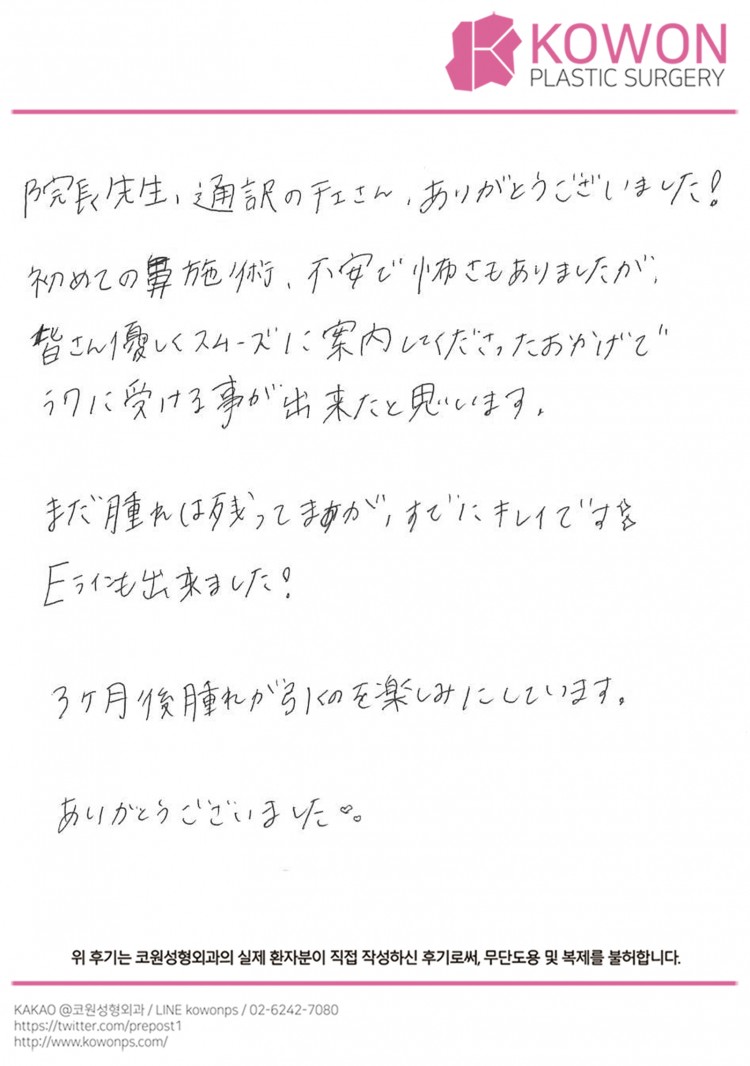 KOWON
PLASTIC SURGERY
院長先生、通訳のチェさん、ありがとうございました!
初めての鼻施術、不安で怖さもありましたが、
皆さん優しくスムーズに案内してくださったおかげで
ラクに受ける事が出来たと思います。
まだ腫れは残ってますが、すでにキレイです☆
Eラインも出来ました!
3ヶ月後腫れが引くのを楽しみにしています。
ありがとうございました♡
위 후기는 코원성형외과의 실제 환자분이 직접 작성하신 후기로써, 무단도용 및 복제를 불허합니다.
KAKAO @코원성형외과 / LINE kowonps / 02-6242-7080
https://twitter.com/prepost1
http://www.kowonps.com/